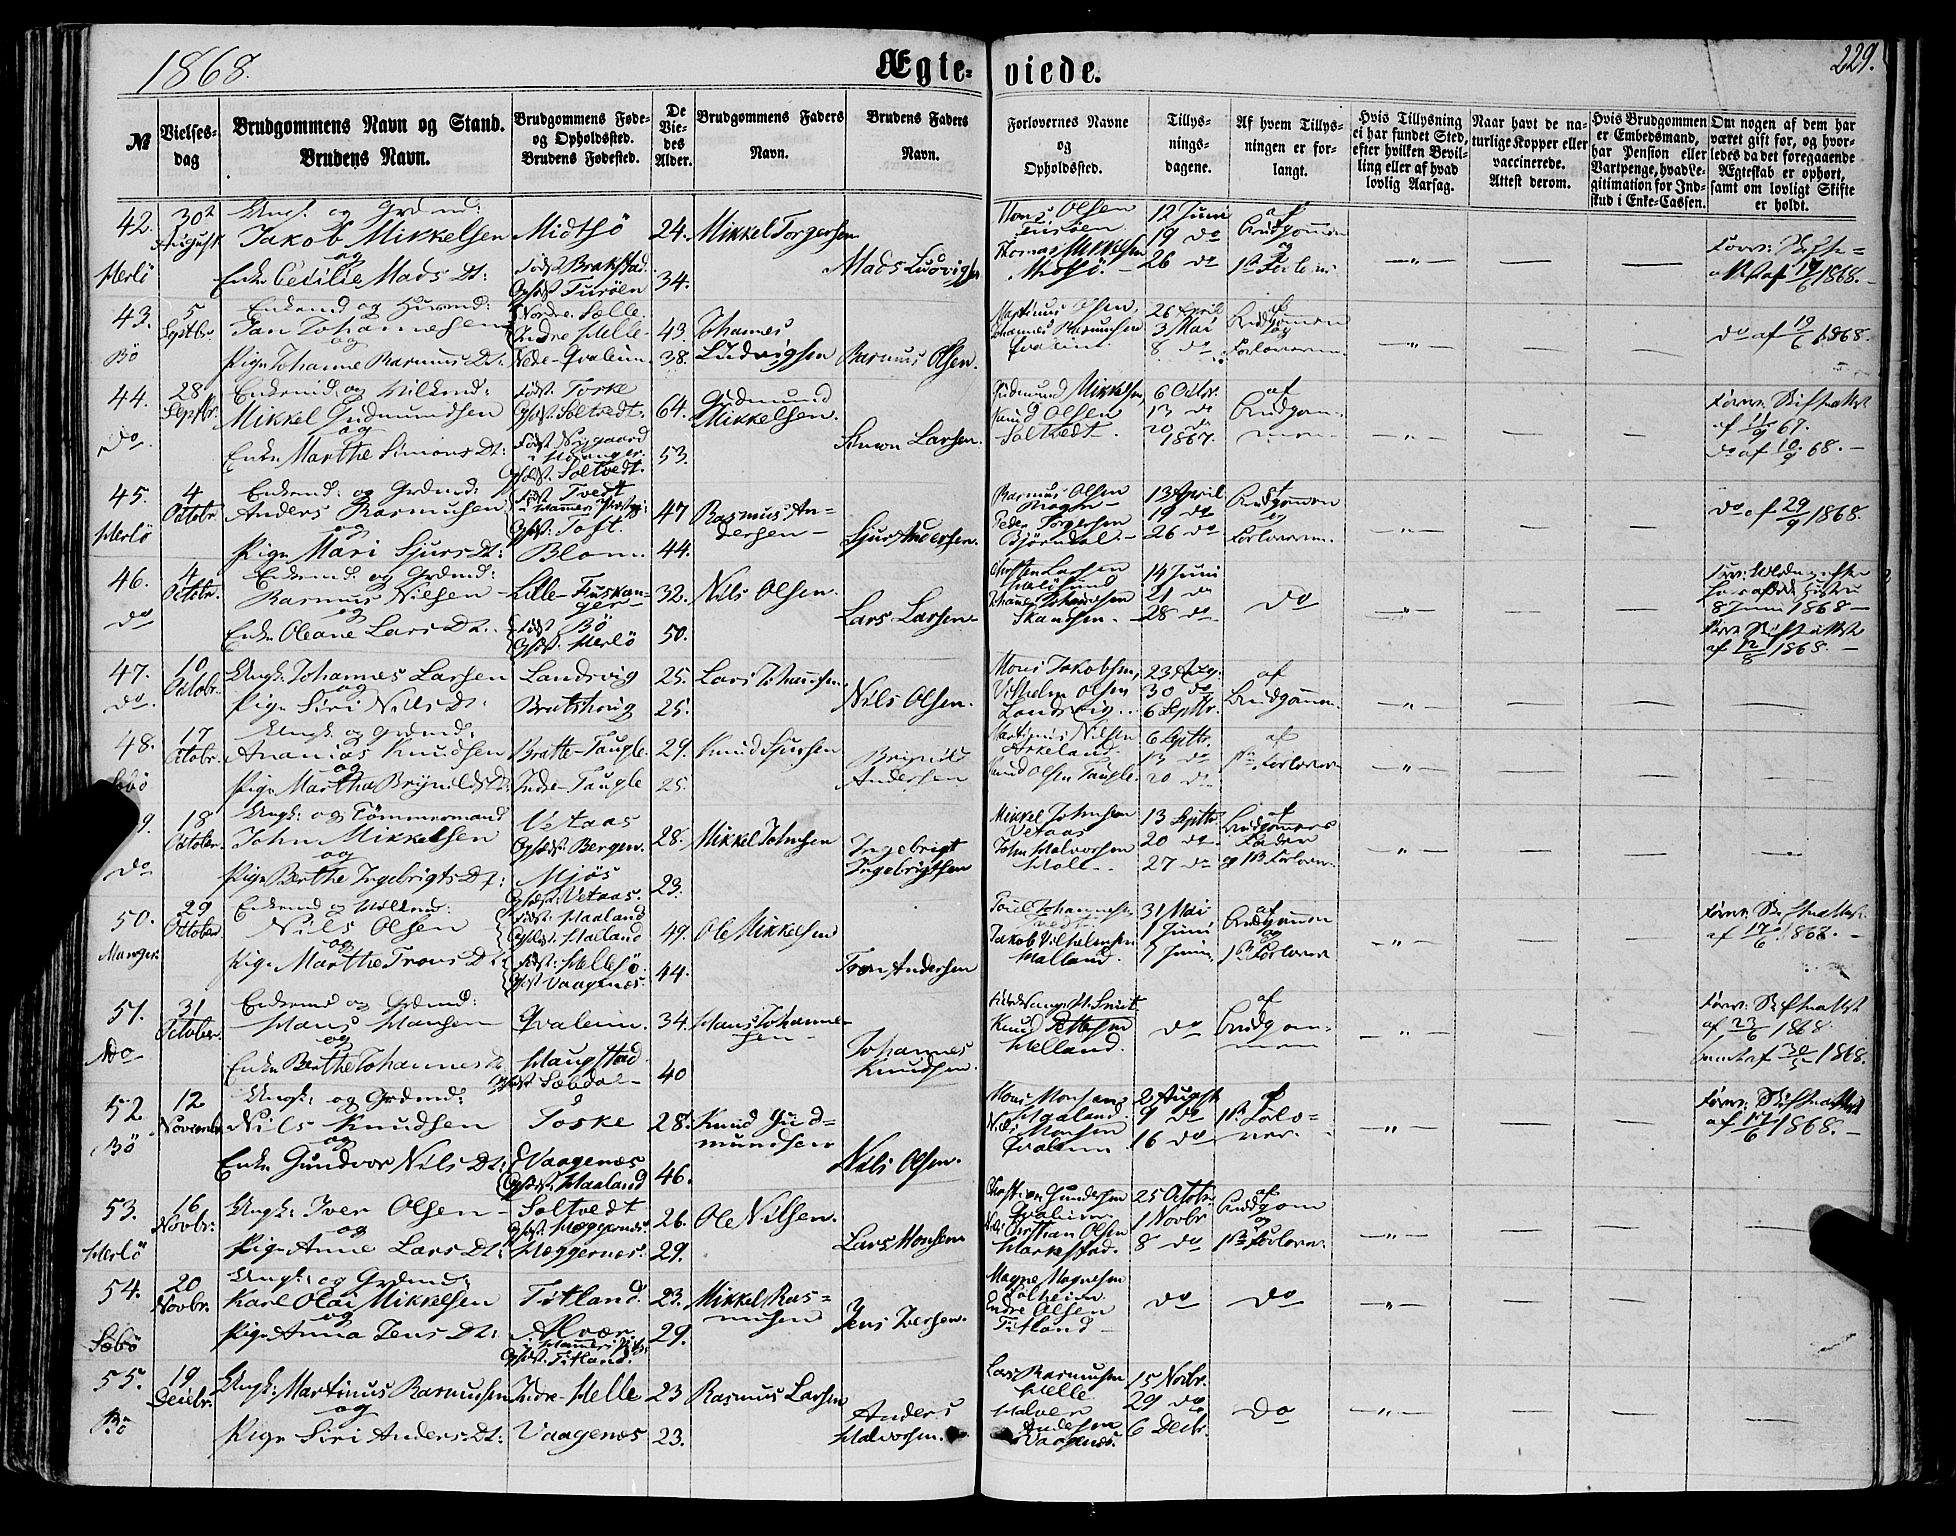 1868.
Ægte-
viede.
229.
№
Vielses-
dag
Brudgommens Navn og Stand.
Brudens Navn.
Brudgommens Føde-
og Opholdssted.
Brudens Fødested.
De
Vie-
des
Alder.
Brudgommens Faders
Navn.
Brudens Faders
Navn.
Forlovernes Navne
og
Opholdssted.
Tillys-
nings-
dagene.
Af hvem Tillys-
ningen er for-
langt.
Hvis Tillysning
ei har fundet Sted,
efter hvilken Bevil-
ling eller af hvad
lovlig Aarsag.
Naar havt de na-
turlige Kopper eller
vaccinerede.
Attest derom.
Hvis Brudgommen
er Embedsmand,
har Pension eller
Vartpenge, hvad Le-
gitimation for Ind-
skud i Enke-Cassen.
Om nogen af dem har
været gift før, og hvor-
ledes da det foregaaende
Ægteskab er ophørt,
samt om lovligt Skifte
er holdt.
42.
August
Herlö
Ungk. og Grdmd:
Jakob Mikkelsen
og
Enke Cecilie Mads Dt:
Midtsö
Födt Brakstad
Ophst. Turöen
24.
34.
Mikkel Torgersen
Mons Olsen
Turöen
Thomas Mikkelsen
Midtsö.
12 Juni
19 do
26 do
af
Brudgommen
og
43.
5
Septbr.
Bö
Enkemd og Huusmd:
Jan Johannesen
og
Pige Johanne Rasmus Dt:
Nordre Sælle.
Indre Helle
Nede-Qvalein
43.
38.
Johannes
Ludvigsen
Rasmus Olsen.
Martinus Olsen,
Johannes Rasmussen
Qvalein.
26 April
3 Mai
8 do
af
Brudgommen
og
Forloveren.
do af 19/6 1868.
44.
28
Septbr.
do
Enkemd. og Vilkmd:
Mikkel Gudmundsen
og
Enke Marthe Simons Dt:
Födt. Toske
Ophst. Soltvedt.
Födt Nygaard
i Manger.
Ophst. Soltvedt.
64.
53.
Gudmund
Mikkelsen.
Simon Larsen.
Gudmund Mikkelsen,
Knud Olsen
Soltvedt.
6 Octbr.
13 do
20 do
1867.
af
Brudgom-
men
45.
4
Octobr
Herlö
Enkemd: og Grdmd:
Anders Rasmussen
og
Pige Mari Sjurs Dt:
Födt Tvedt
Ophst: Toft.
Blom.
47
44.
Rasmus An-
dersen
Sjur Andersen.
Rasmus Olsen
Peder Torgersen
Björndal.
13 April
19 do
26 do
Brudgommen
og
Forloveren.
do af 29/9 1868.
46.
4
Octobr.
do
Enkemd. og Grdmd:
Rasmus Nilsen
og
Enke Oleane Lars Dt.
Lille-Fuskan-
ger
Födt Bö
Ophst. Herlö
32.
50.
Nils Olsen.
Lars Larsen.
Johannes Johannesen
Skandsen.
14 Juni
21 do
28 do
do
8 Juni 1868
af 12/8 1868.
47.
10
Octobr.
do.
Ungk. Johannes Larsen
og
Pige Siri Nils Dt.
Landsvig
Bratshoug
25.
25.
Lars Johannesen.
Nils Olsen.
Mons Jakobsen,
Vilhelm Olsen
Landsvig.
23 Aug.
30 do
6 Septbr.
af
Brudgommen
48.
17
Octobr.
Sæbö
Ungk. og Grdmd:
Ananias Knudsen
og
Pige Martha Brynilds Dt:
Bratte-Taugle.
Indre-Taugle
29.
25.
Knud Sjursen
Brynild
Andersen
Martinus Nilsen
Askeland.
Knud Olsen Taugle.
6 Septbr.
13 do
20 do
af
1ste Forlover
9
18
Octobr.
do
Ungk. og Tömmermand
John Mikkelsen
og
Pige Berthe Ingebrigts Dt:
Vetaas
Ophst. Bergen.
Mjös
Ophst: Vetaas.
28.
23.
Mikkel Johnsen
Ingebrigt
Ingebrigtsen
Mikkel Johnsen
Vetaas
John Halvorsen
Hole.
13 Septbr
20 do
27 do
af
Brudgommens
Fader
og 1ste Forlover.
50.
29
October
Manger.
Enkemd og Vilkmd:
Nils Olsen
og
Pige Marthe Trons Dt:
Födt. Haaland
Ophst. Haaland
Födt: Hellesö.
Ophst. Vaagenæs.
49.
44.
Ole Mikkelsen
Tron Andersen
Jakob Vilhelmsen
Haland.
31 Mai
1 Juni
7 Juni
af
Brudgommen
og
1ste Forlover
af 17/6 1868.
51.
31
October
do
Enkemd og Grdmd:
Hans Hansen
og
Enke Berthe Johannes Dt
Qvalein.
Haugstad
Ophst. Sæbdal
34.
40
Hans Johanne-
sen
Johannes
Knudsen.
Knud Pettersen
Helland.
do
af
Brudgom-
men
1868.
1868.
52
12
November
Bö
Ungk: og Grdmd:
Nils Knudsen
og
Enke Gundvor Nils Dt:
Toske
Vaagenæs
Ophst. Haaland
28.
46.
Knud Gud-
mundsen
Nils Olsen.
Mons Monsen
Haaland.
Nils Monsen
Qvalein
2 August
9 do
16 do
af
1ste Forlo-
ver.
af 17/6 1868.
53.
16
Novbr:
Herlö
Ungk: Iver Olsen
og
Pige Anne Lars Dt:
Soltvedt
Ophst. Hæggernæs
Hæggernæs.
26.
29.
Ole Nilsen.
Lars Monsen
Christian Gundersen
Qvalein.
Nils Christian Olsen
25 Octobr
1 Novbr
8 do
af
Brudgom
og
1ste Forlover.
54.
20
Novbr.
Sæbö
Ungk: og Grdmd:
Karl Olai Mikkelsen
og
Pige Anna Jens Dt:
Titland.
Alvær.
Ophst: Titland.
23.
29.
Mikkel Ras-
musen
Jens Iversen.
Magne Magnesen
Solheim.
Endre Olsen
Titland
do
do
55.
19
Decbr.
Bö
Ungk: Martinus Rasmussen
og
Pige Siri Anders Dt:
Indre-Helle
Vaagenæs
23
23.
Rasmus Larsen
Anders
Halvorsen.
Lars Rasmussen
Helle.
Halvor
Andersen
Vaagenæs.
15 Novbr.
29 do
6 Decbr.
do